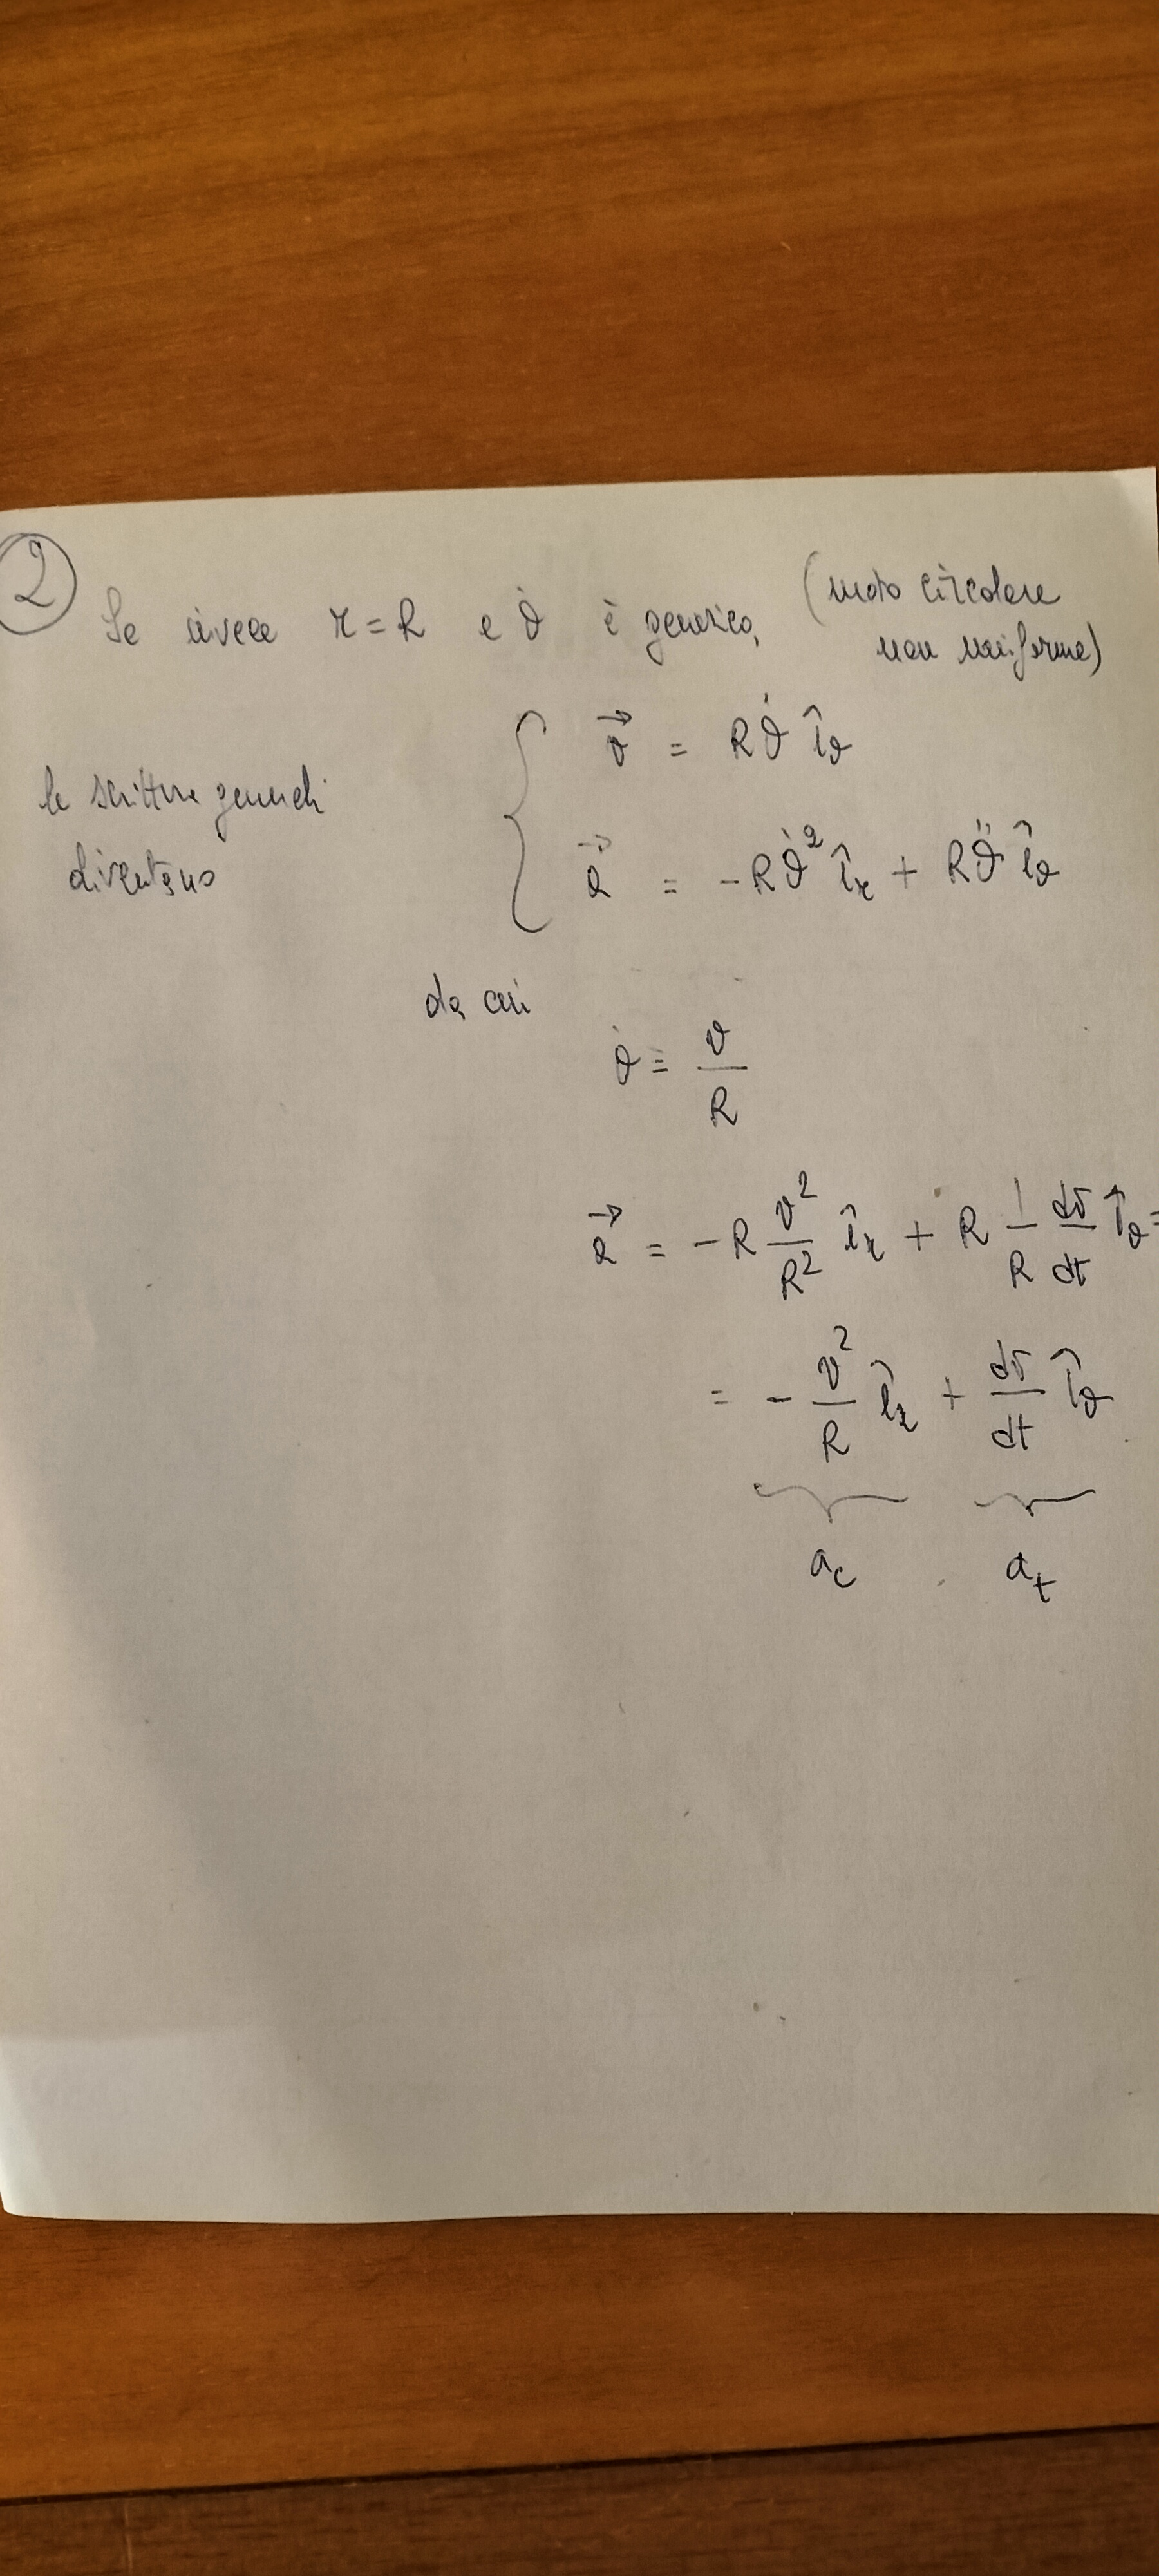 2
Se invece r = R e θ̇ è generico, (moto circolare
non uniforme)
le scritture generali
diventano
{ v⃗ = Rθ̇ î_θ
a⃗ = -Rθ̇² î_r + Rθ̈ î_θ
da cui
θ̇ = v/R
a⃗ = -R v²/R² î_r + R 1/R dv/dt î_θ =
= - v²/R î_r + dv/dt î_θ
a_c a_t